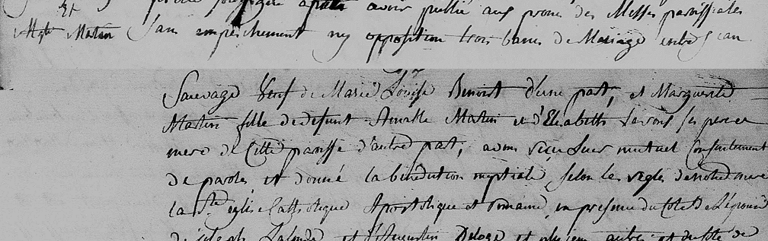 après avoir publié aux prone des Messes paroissiales
et
Mgte Martin Sans empeschement ny opposition trois bans de Mariage entre Jean
Sauvage Veuf de Marie Louise Benoist d'une part, et Marguerite
Martin fille de defunt Amable Martin et d'Elizabeth ses pere et
mere de Cette paroisse d'autre part, avons reçu Leur mutuel Consentement
de paroles et donné la bénédiction nuptiale selon les regles de notre mere
la Ste eglise Catholique Apostolique et romaine, en presence du Coté de
de Joseph Lalonde et d'Augustin et plusieurs autres et du Coté de